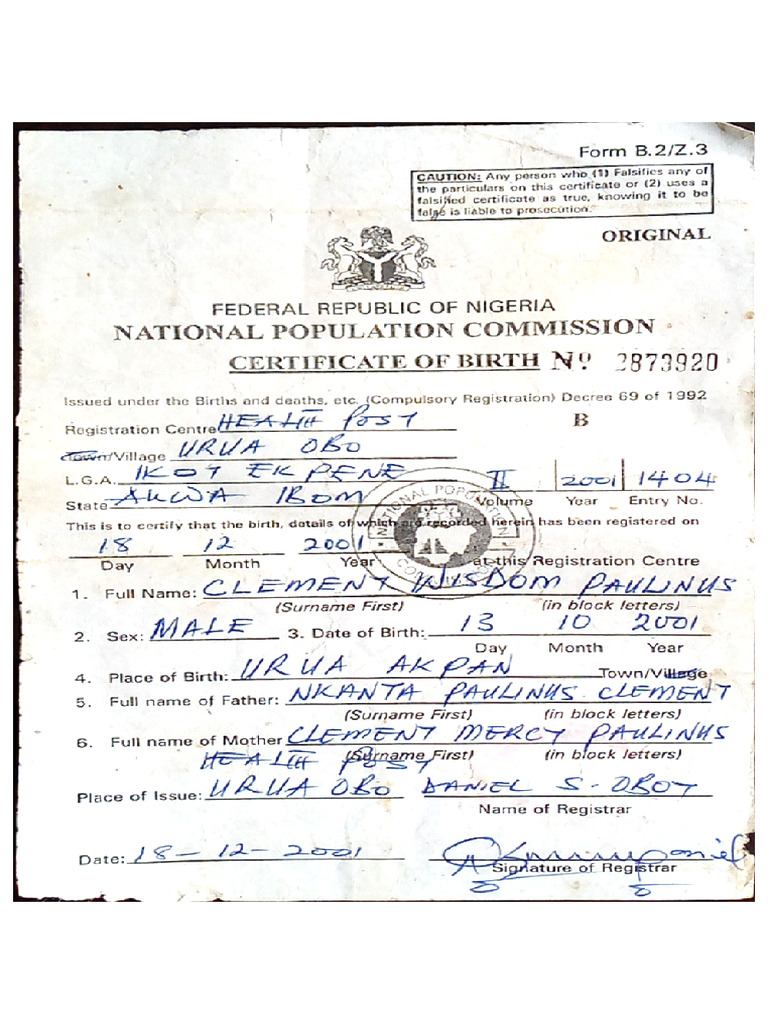 Form B.2/Z.3
CAUTION: Any person who (1) Falsifies any of
the particulars on this certificate or (2) uses a
falsified certificate as true, knowing it to be
false is liable to prosecution."
ORIGINAL
FEDERAL REPUBLIC OF NIGERIA
NATIONAL POPULATION COMMISSION
CERTIFICATE OF BIRTH Nº 2873920
Issued under the Births and deaths, etc. (Compulsory Registration) Decree 69 of 1992
Registration Centre HEALTH POST B
Town/Village URUA OBO
L.G.A. IKOT EKPENE II 2001 1404
State AKWA IBOM Volume Year Entry No.
NATIONAL POPULATION
This is to certify that the birth, details of which are recorded herein has been registered on
18 12 2001
Day Month Year at this Registration Centre
1. Full Name: CLEMENT WISDOM PAULINUS
(Surname First) (in block letters)
2. Sex: MALE 3. Date of Birth: 13 10 2001
Day Month Year
4. Place of Birth: URUA AKPAN Town/Village
5. Full name of Father: NKANTA PAULINUS CLEMENT
(Surname First) (in block letters)
6. Full name of Mother CLEMENT MERCY PAULINUS
HEALTH POST (Surname First) (in block letters)
Place of Issue: URUA OBO DANIEL S. OBOT
Name of Registrar
Date: 18-12-2001
Signature of Registrar